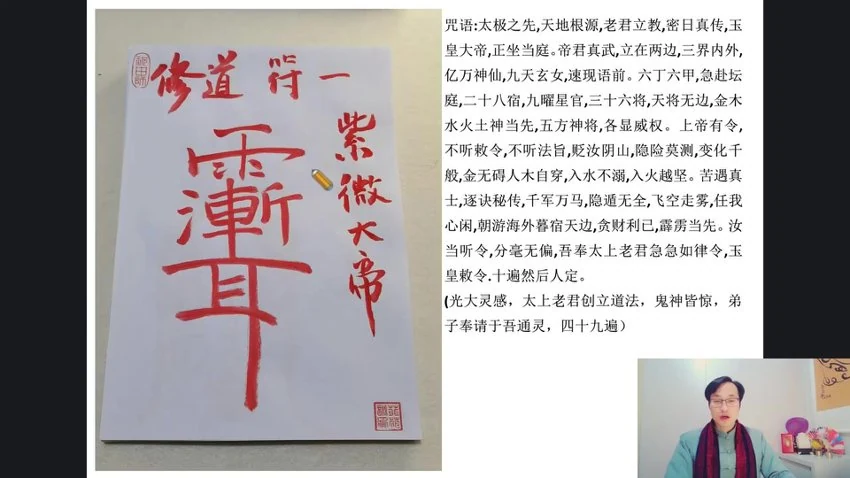 修道 符一
紫微大帝
咒语:太极之先,天地根源,老君立教,密日真传,玉
皇大帝,正坐当庭。帝君真武,立在两边,三界内外,
亿万神仙,九天玄女,速现语前。六丁六甲,急赴坛
庭,二十八宿,九曜星官,三十六将,天将无边,金木
水火土神当先,五方神将,各显威权。上帝有令,
不听敕令,不听法旨,贬汝阴山,隐险莫测,变化千
般,金无碍人木自穿,入水不溺,入火越坚。苦遇真
士,逐诀秘传,千军万马,隐遁无全,飞空走雾,任我
心闲,朝游海外暮宿天边,贪财利已,霹雳当先。汝
当听令,分毫无偏,吾奉太上老君急急如律令,玉
皇敕令.十遍然后人定。
(光大灵感，太上老君创立道法，鬼神皆惊，弟
子奉请于吾通灵，四十九遍）